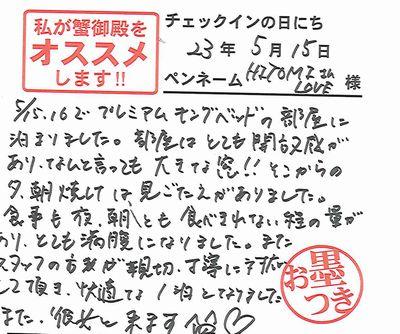 私が蟹御殿を
オススメ
します!!
チェックインの日にち
23年 5月 15日
ペンネーム HITOMIさん LOVE 様
5/15.16で プレミアムキングベッドの部屋に
泊まりました。部屋はとても開放感が
あり、なんと言っても大きな窓!! そこからの
夕、朝焼けは見ごたえがありました。
食事も夜、朝とも食べきれない程の量が
あり、とても満腹になりました。また
スタッフの方々が親切、丁寧に対応
して頂き、快適な1泊となりました
また、彼女と来ます
お墨つき